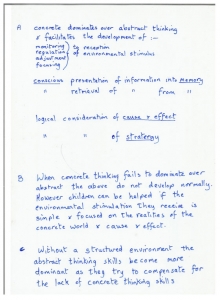 A concrete dominates over abstract thinking
& facilitates the development of :-
monitoring } to reception
regulation } of environmental stimulus
adjustment
focussing
conscious presentation of information into memory
" retrieval of " from "
logical consideration of cause & effect
" " of stratergy
B When concrete thinking fails to dominate over
abstract the above do not develop normally.
However children can be helped if the
environmental stimulation they receive is
simple & focused on the realities of the
concrete world & cause & effect.
C Without a structured environment the
abstract thinking skills become more
dominant as they try to compensate for
the lack of concrete thinking skills